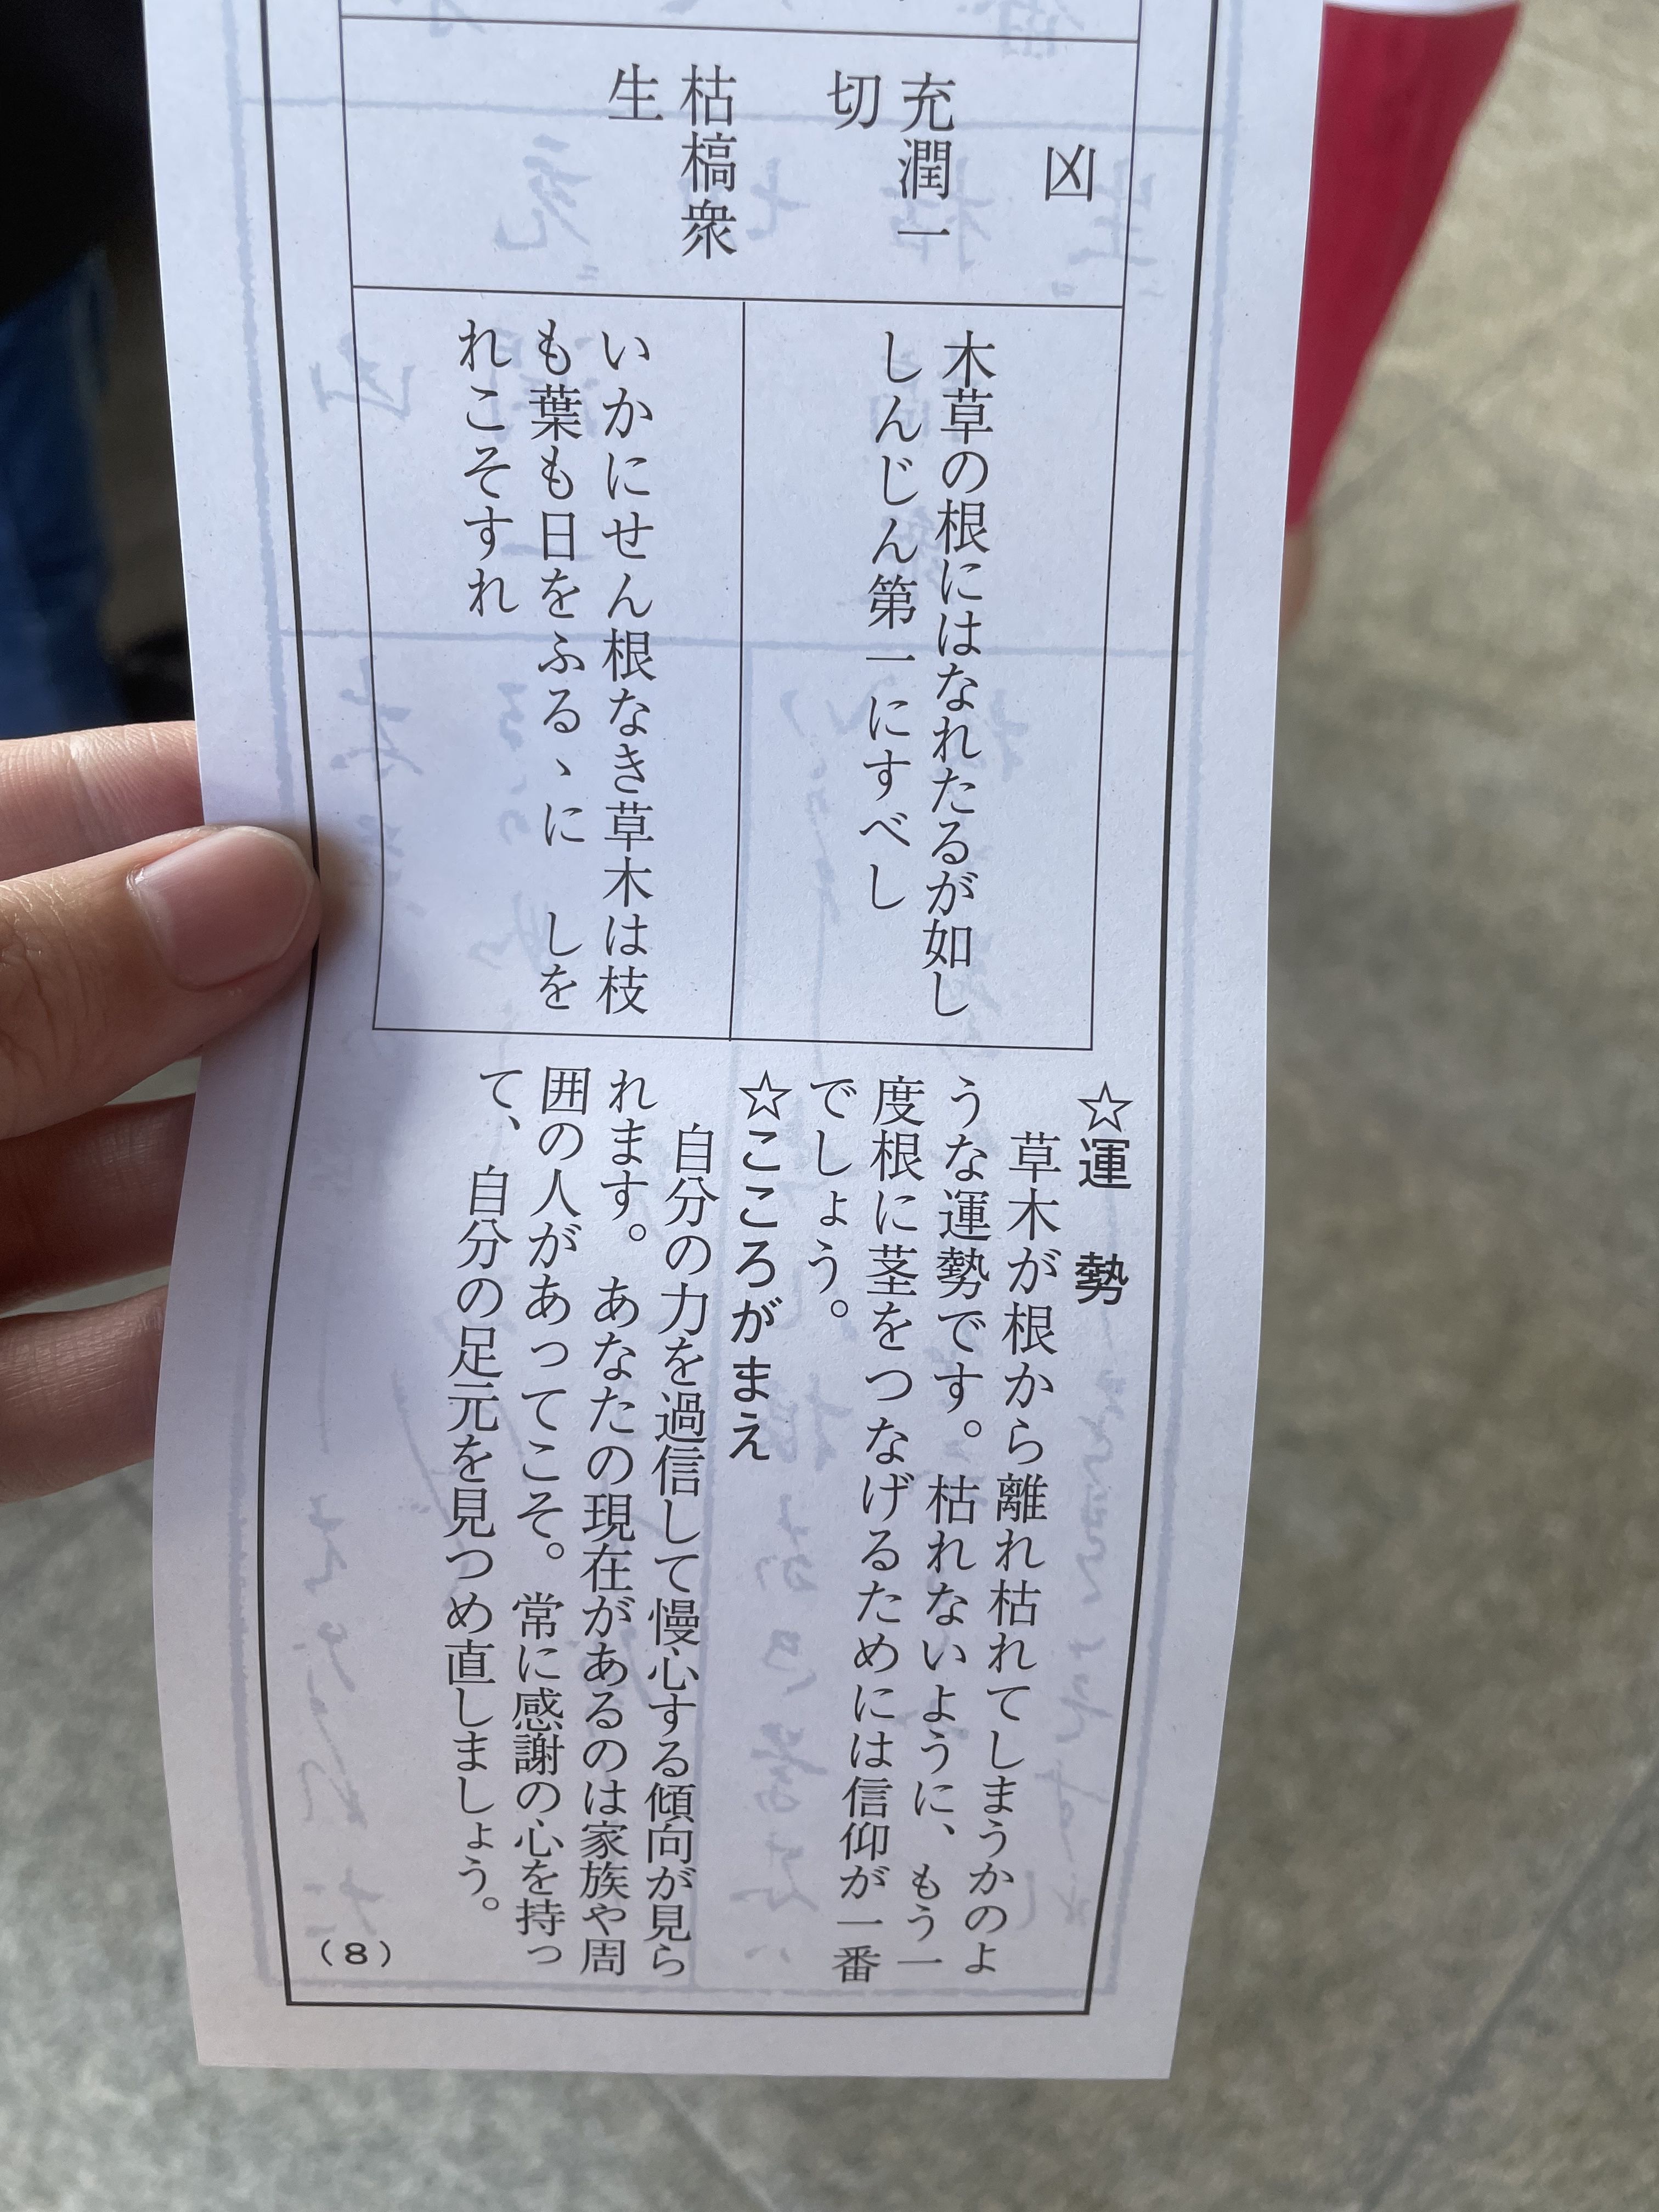 凶
充潤一
切
枯槁衆
生
木草の根にはなれたるが如し
しんじん第一にすべし
いかにせん根なき草木は枝
も葉も日をふるヽに　しを
れこそすれ
☆運　勢
草木が根から離れ枯れてしまうかのよ
うな運勢です。枯れないように、もう一
度根に茎をつなげるためには信仰が一番
でしょう。
☆こころがまえ
自分の力を過信して慢心する傾向が見ら
れます。あなたの現在があるのは家族や周
囲の人があってこそ。常に感謝の心を持っ
て、自分の足元を見つめ直しましょう。
（8）